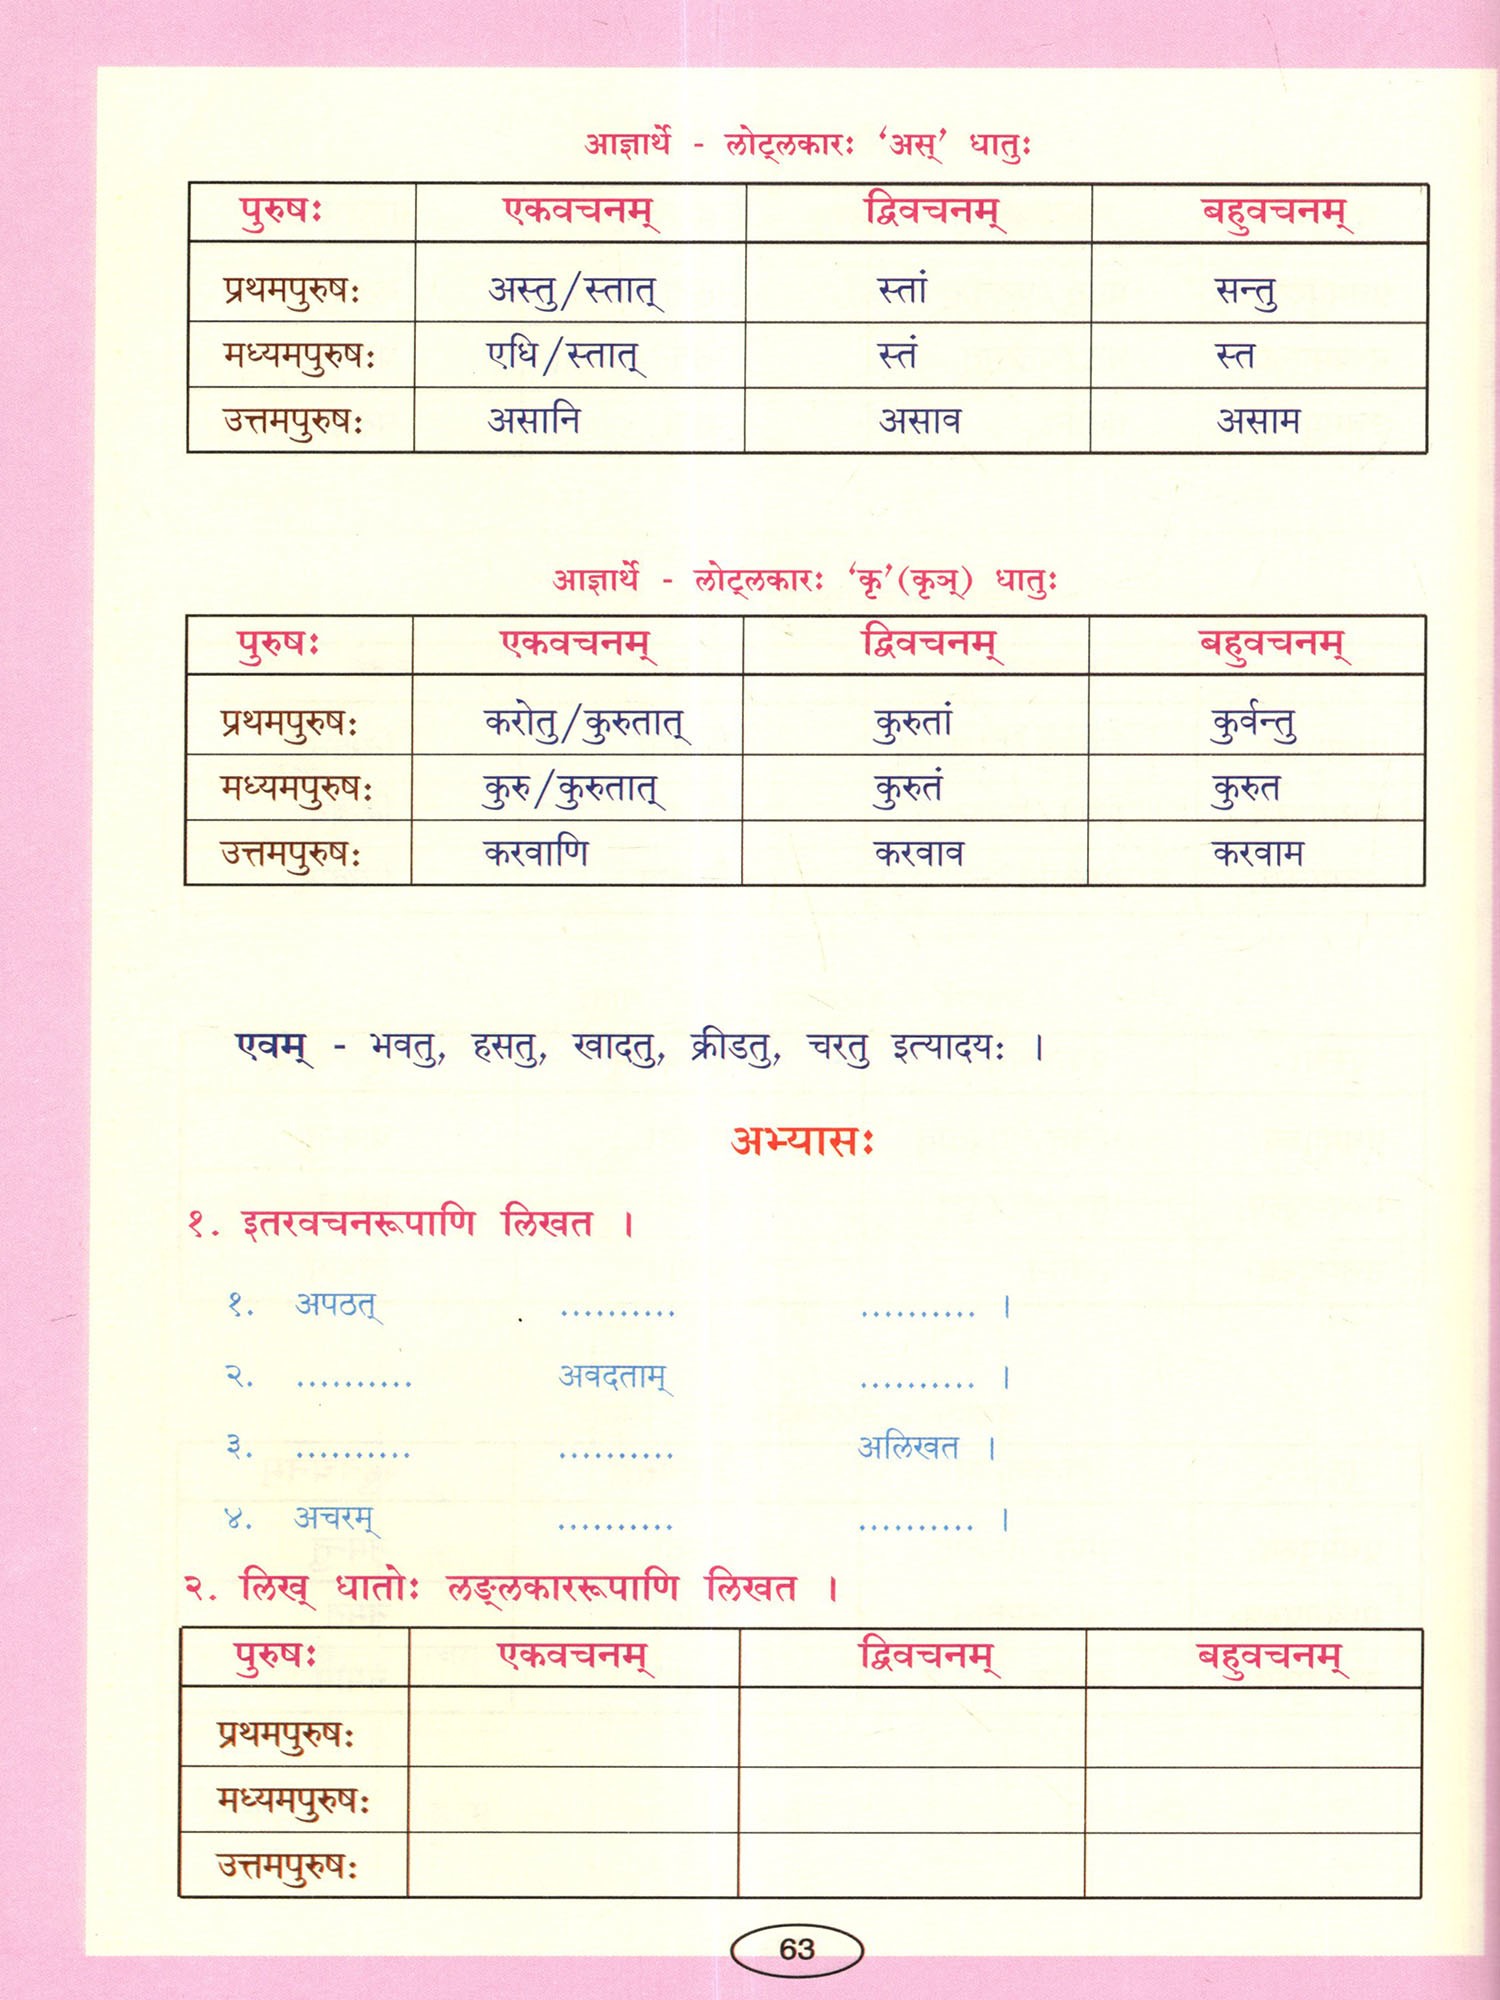 आज्ञार्थे - लोट्लकारः ‘अस्’ धातुः
पुरुषः एकवचनम् द्विवचनम् बहुवचनम्
प्रथमपुरुषः अस्तु/स्तात् स्तां सन्तु
मध्यमपुरुषः एधि/स्तात् स्तं स्त
उत्तमपुरुषः असानि असाव असाम
आज्ञार्थे - लोट्लकारः ‘कृ’(कृञ्) धातुः
पुरुषः एकवचनम् द्विवचनम् बहुवचनम्
प्रथमपुरुषः करोतु/कुरुतात् कुरुतां कुर्वन्तु
मध्यमपुरुषः कुरु/कुरुतात् कुरुतं कुरुत
उत्तमपुरुषः करवाणि करवाव करवाम
एवम् - भवतु, हसतु, खादतु, क्रीडतु, चरतु इत्यादयः ।
अभ्यासः
१. इतरवचनरूपाणि लिखत ।
१. अपठत् .......... .......... ।
२. .......... अवदताम् .......... ।
३. .......... .......... अलिखत ।
४. अचरम् .......... .......... ।
२. लिख् धातोः लङ्लकाररूपाणि लिखत ।
पुरुषः एकवचनम् द्विवचनम् बहुवचनम्
प्रथमपुरुषः
मध्यमपुरुषः
उत्तमपुरुषः
63